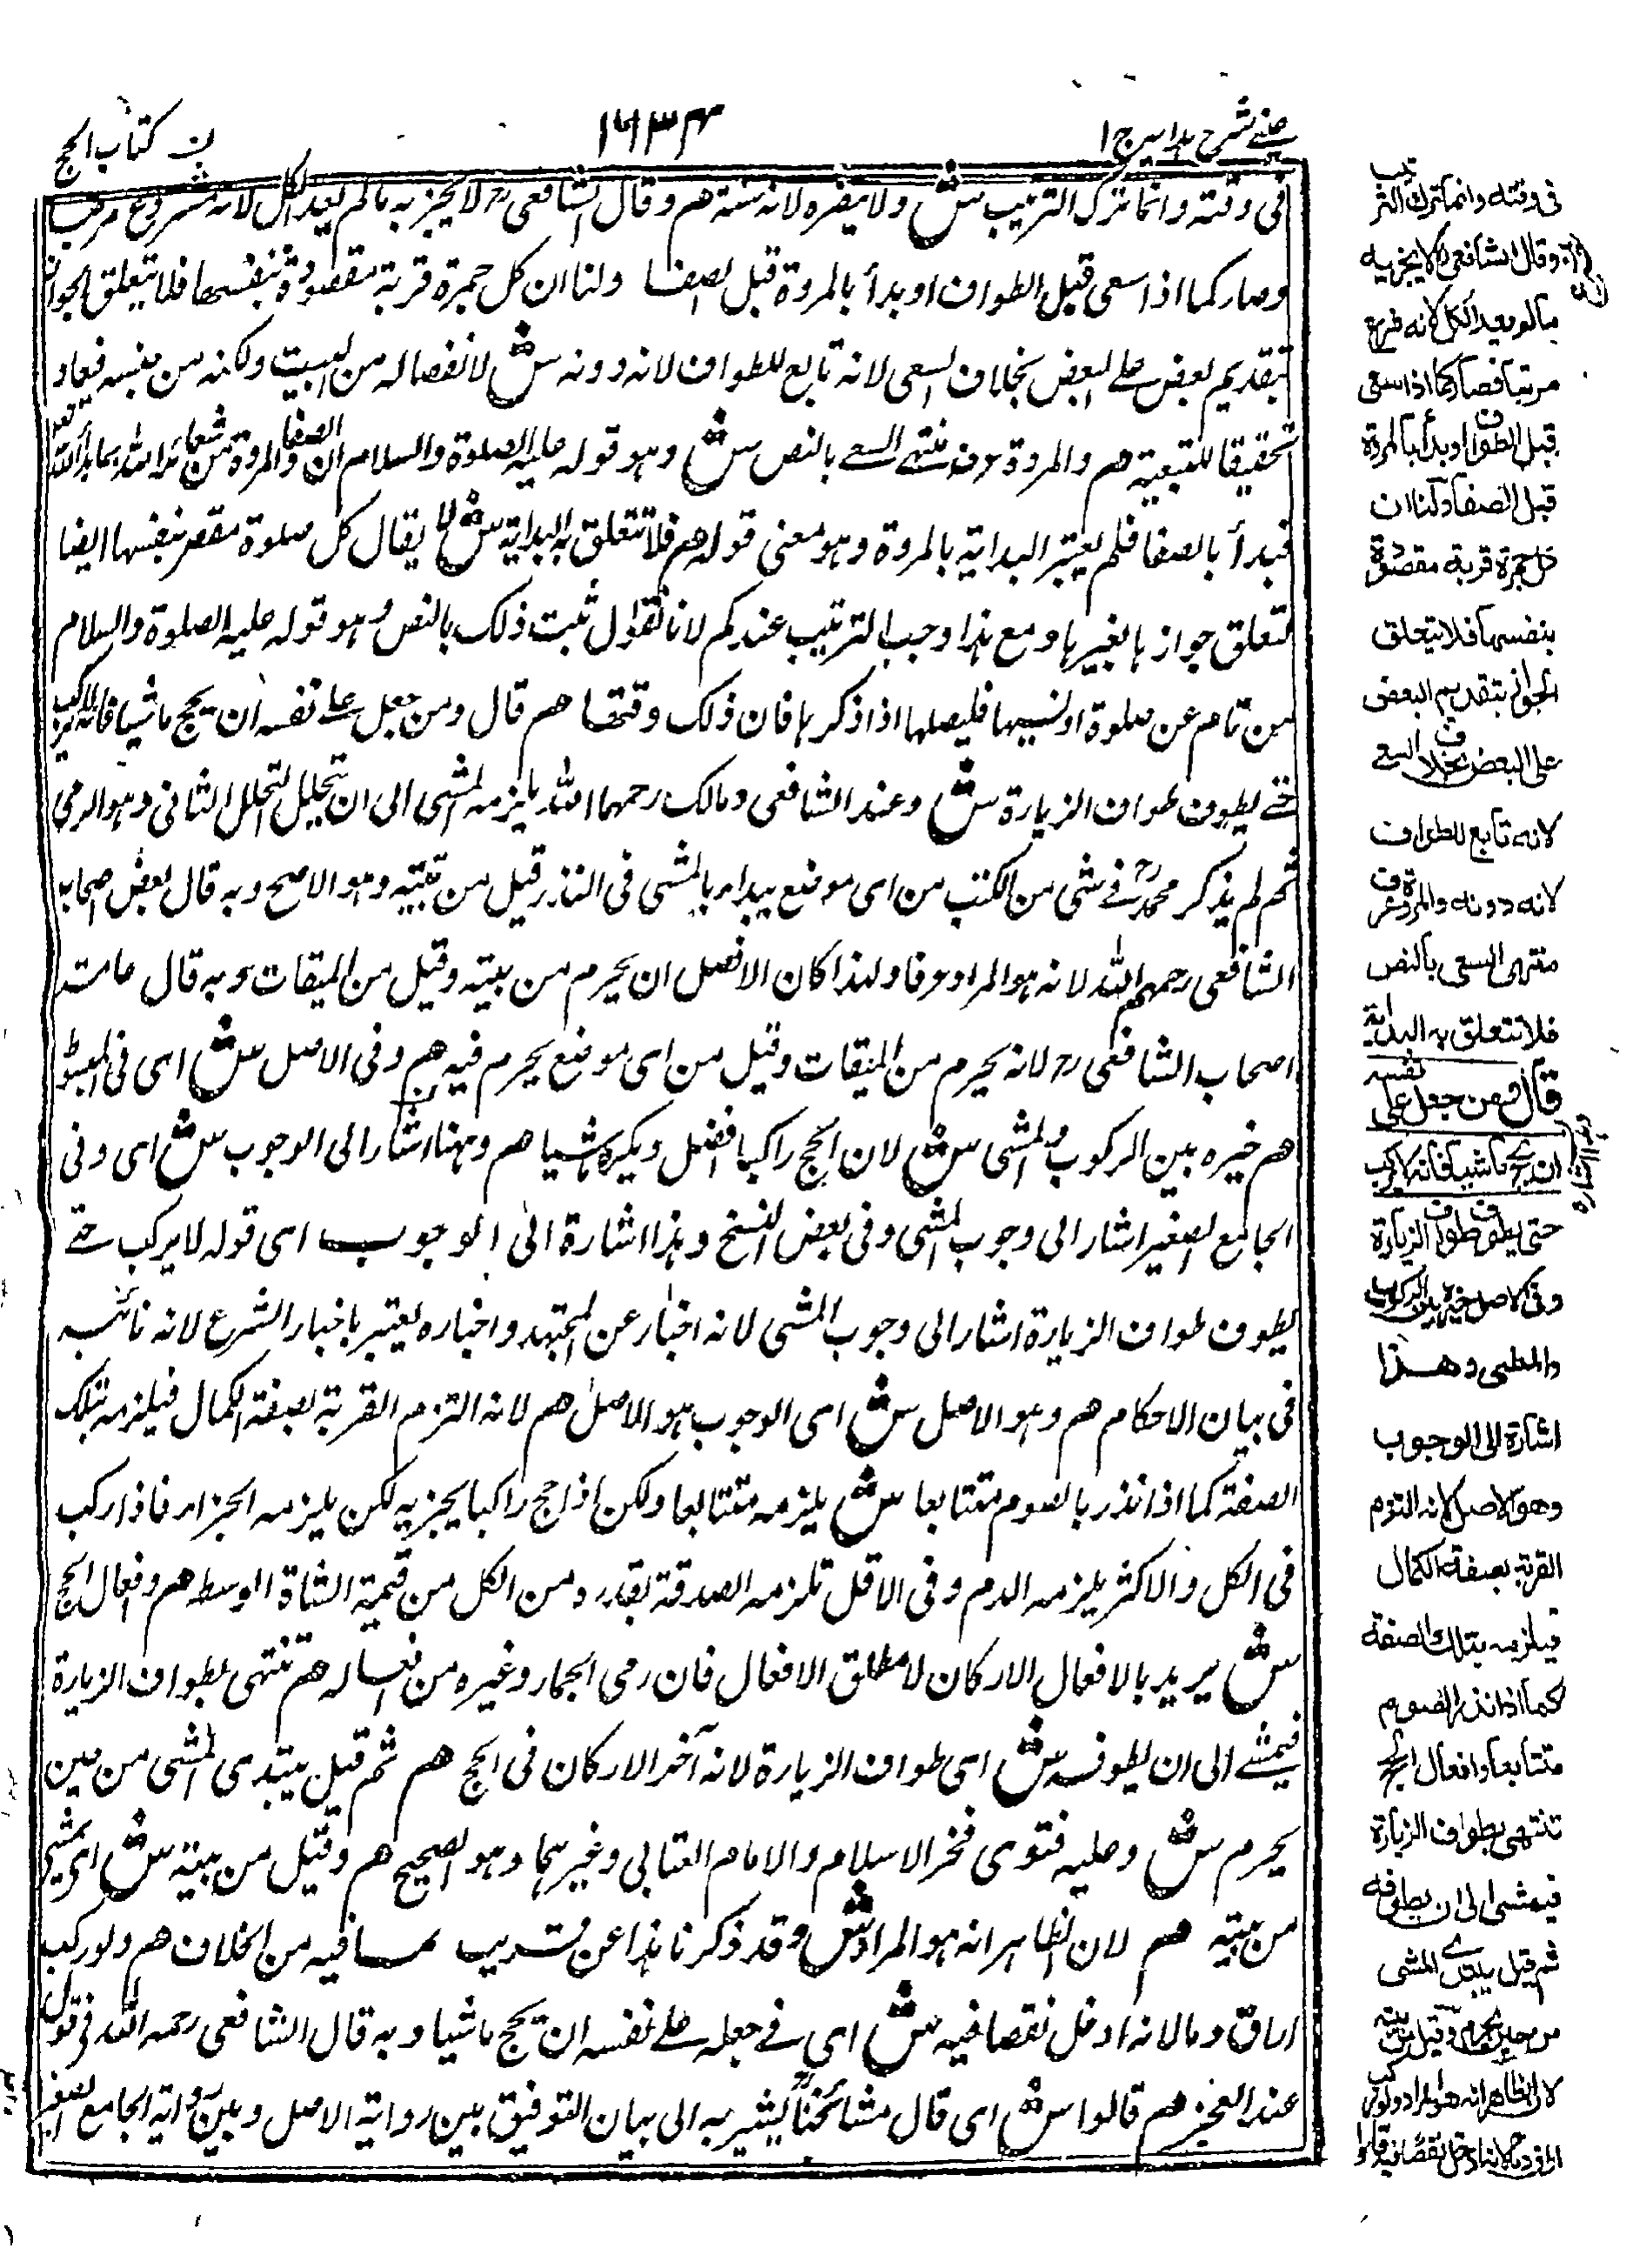 عينی شرح هدايه ج ١
١٦٣٤
كتاب الحج
فی وقته وانما ترك الترتيب ش ولا يضره لانه سنة هم وقال الشافعی رح لا يجزيه ما لم يعد الكل لانه مشروع مرتب
وصار كما اذا سعى قبل الطواف او بدأ بالمروة قبل الصفا ولنا ان كل جمرة قربة مقصودة بنفسها فلا يتعلق الجواز
بتقديم بعض علے البعض بخلاف السعی لانه تابع للطواف لانه دونه ش لانفصاله من البيت ولكنه من
تحقيقا للتبعية هم والمروة عرفت منتهى السعے بالنص ش وهو قوله عليه الصلوة والسلام ان الصفا والمروة من شعائر الله
فبدأ بالصفا فلم يعتبر البداية بالمروة وهو معنى قوله هم فلا تتعلق به البداية ش لا يقال كل صلوة بنفسها ايضا
تعلق جوازها بغيرها ومع هذا وجب الترتيب عندكم لانا نقول ثبت ذلك بالنص وهو قوله عليه الصلوة والسلام
من نام عن صلوة او نسيها فليصلها اذا ذكرها فان ذلك وقتها هم قال ومن جعل علے نفسه ان يحج ماشيا فانه لا يركب
حتے يطوف طواف الزيارة ش وعند الشافعی ومالك رحمهما الله يلزمه المشی الى ان يتحلل التحلل الثانی وهو الرمی
ثم لم يذكر محمد رح فے شی من الكتب من ای موضع يبدأ بالمشی فی النذر قيل من بيته وهو الاصح وبه قال بعض اصحاب
الشافعی رحمهم الله لانه هو المراد عرفا ولهذا كان الافضل ان يحرم من بيته وقيل من الميقات وبه قال عامة
اصحاب الشافعی رح لانه يحرم من الميقات وقيل من ای موضع يحرم فيه هم وفی الاصل ش ای فی المبسوط
هم خيره بين الركوب والمشی ش لان الحج راكبا افضل ويكره ماشيا هم وههنا اشار الى الوجوب ش ای وفی
الجامع الصغير اشار الى وجوب المشی وفی بعض النسخ وهذا اشارة الى الوجوب ای قوله لا يركب حتے
يطوف طواف الزيارة اشار الى وجوب المشی لانه اخبار عن المجتهد واخباره يعتبر باخبار الشرع لانه نائبه
فی بيان الاحكام هم وهو الاصل ش ای الوجوب هو الاصل هم لانه التزم القربة بصفة الكمال فيلزمه بتلك
الصفة كما اذا نذر بالصوم متتابعا ش يلزمه متتابعا ولكن اذا حج راكبا يجزيه لكن يلزمه الجزاء فاذا ركب
فی الكل والاكثر يلزمه الدم وفی الاقل تلزمه الصدقة بقدره من الكل من قيمة الشاة الوسط هم وافعال الحج
ش يريد بالافعال الاركان لا مطلق الافعال فان رمی الجمار وغيره من افعاله هم تنتهی بطواف الزيارة
فيمشے الى ان يطوفه ش ای طواف الزيارة لانه آخر الاركان فی الحج هم ثم قيل يبتدی المشی من حين
يحرم ش وعليه فتوى فخر الاسلام والامام العتابی وغيرهما وهو الصحيح هم وقيل من بيته ش ای يمشی
من بيته هم لان الظاهر انه هو المراد ش وقد ذكرنا هذا عن قريب بما فيه من الخلاف هم ولو ركب
اراق دما لانه ادخل نقصا فيه ش ای فے جعله علے نفسه ان يحج ماشيا وبه قال الشافعی رحمه الله فی قول
عند العجز هم قالوا ش ای قال مشائخنا يشير به الى بيان التوفيق بين رواية الاصل وبين رواية الجامع الصغير
فی وقته وانما ترك الترتيب
وقال الشافعی لا يجزيه
ما لم يعد الكل لانه شرع
مرتبا فصار كما اذا سعى
قبل الطواف او بدأ بالمروة
قبل الصفا ولنا ان
كل جمرة قربة مقصودة
بنفسها فلا يتعلق
الجواز بتقديم البعض
على البعض بخلاف السعی
لانه تابع للطواف
لانه دونه والمروة عرفت
منتهى السعی بالنص
فلا تتعلق به البداية
قال ومن جعل على نفسه
ان يحج ماشيا فانه لا يركب
حتى يطوف طواف الزيارة
وفی الاصل خيره بين الركوب
والمشی وهذا
اشارة الى الوجوب
وهو الاصل لانه التزم
القربة بصفة الكمال
فيلزمه بتلك الصفة
كما اذا نذر الصوم
متتابعا وافعال الحج
تنتهی بطواف الزيارة
فيمشی الى ان يطوفه
ثم قيل يبتدی المشی
من حين يحرم وقيل من بيته
لان الظاهر انه هو المراد ولو ركب
اراق دما لانه ادخل نقصا فيه قالوا